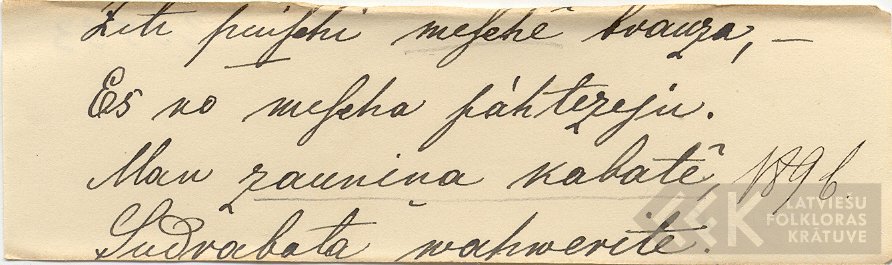 Ziti puischi meschê brauza, —
Es no mescha páhtezeju.
Man zauniņa kabatê 1896
Sudrabota wahwerite.
LATVIEŠU
FOLKLORAS
KRĀTUVE